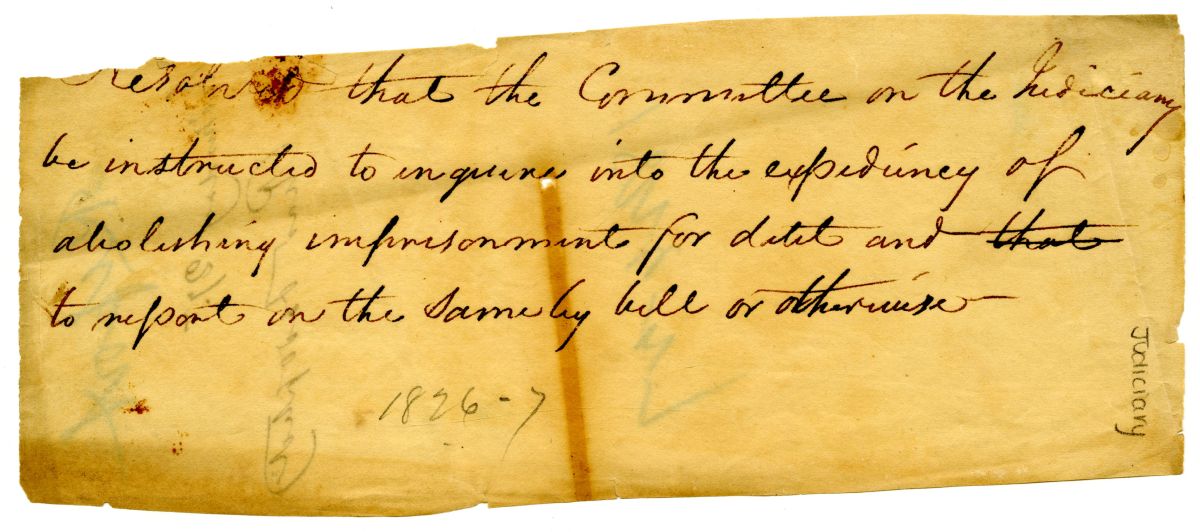 Resolved that the Committee on the Judiciary
be instructed to inquire into the expediency of
abolishing imprisonment for debt and that
to report on the same by bill or otherwise
1826-7
Judiciary